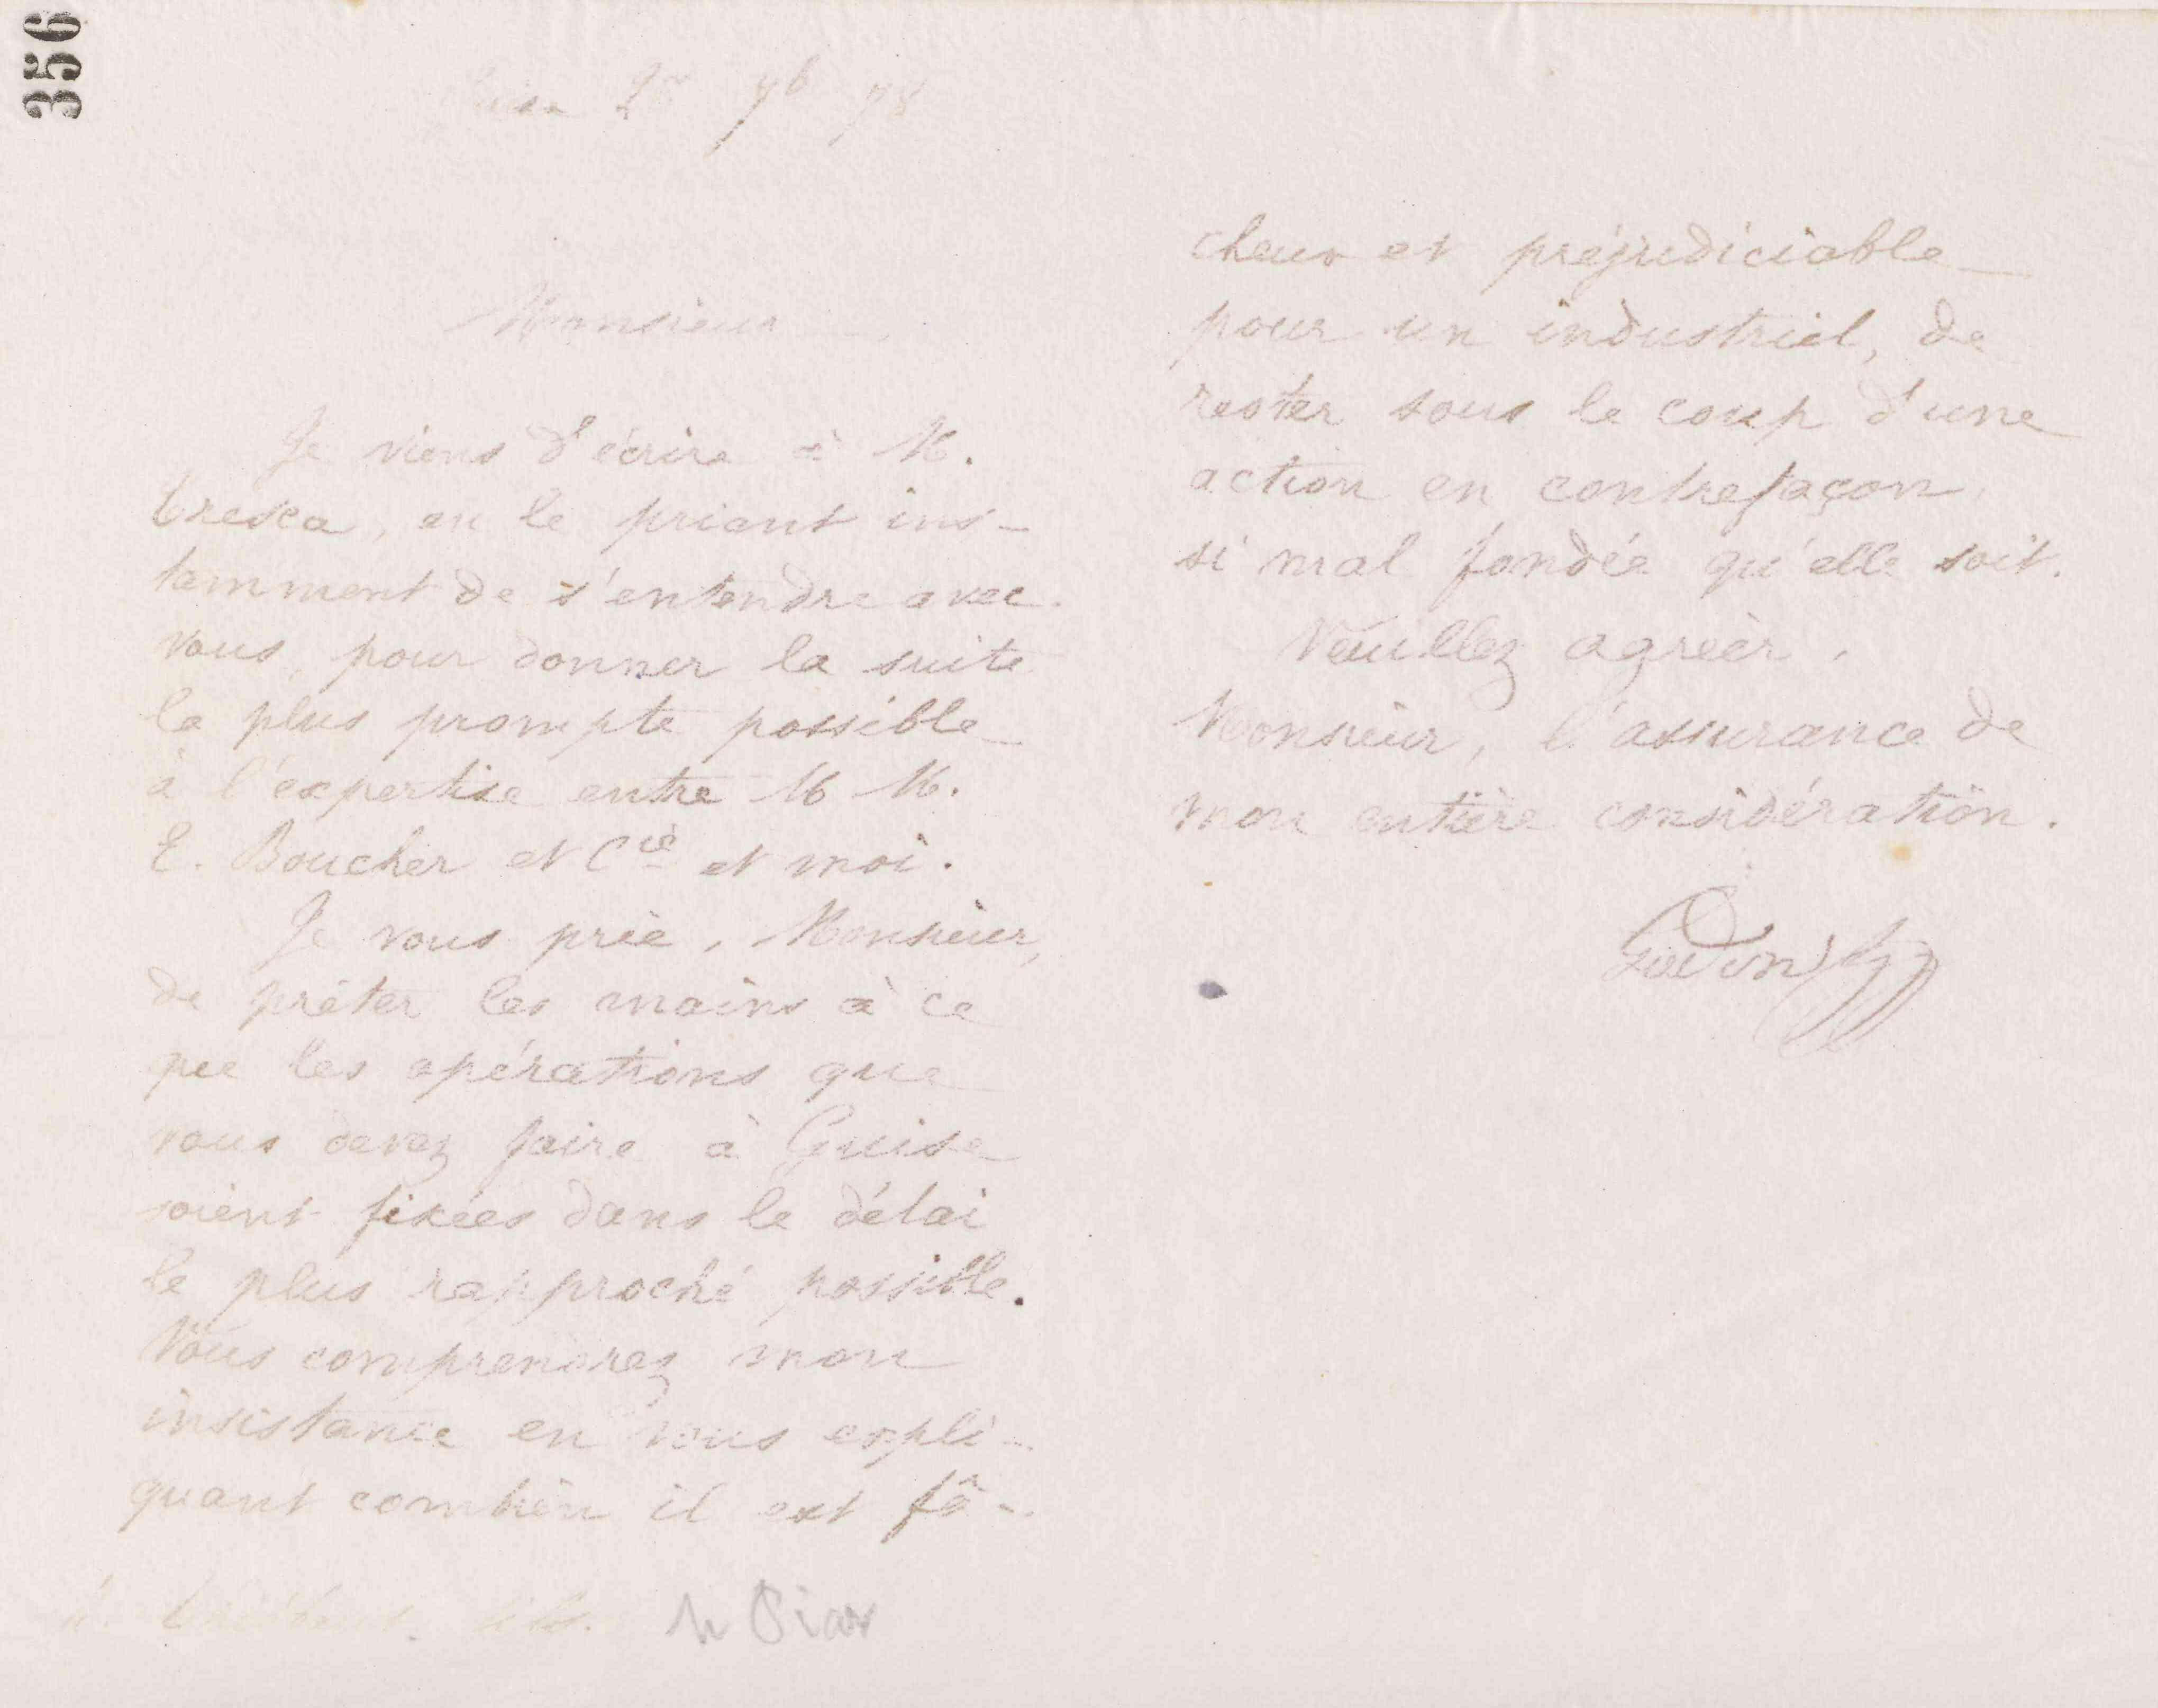 356
7b 78
Monsieur
Je viens d'écrire à M.
Tresca, en le priant ins-
tamment de s'entendre avec
vous, pour donner la suite
la plus prompte possible
à l'expertise entre M M.
E. Boucher et Cie et moi.
Je vous prie, Monsieur,
de prêter les mains à ce
que les opérations que
vous devez faire à Guise
soient fixées dans le délai
le plus rapproché possible.
Vous comprendrez mon
insistance en vous expli-
quant combien il est fâ-
cheux et préjudiciable
pour un industriel, de
rester sous le coup d'une
action en contrefaçon,
si mal fondée qu'elle soit.
Veuillez agréer,
Monsieur, l'assurance de
mon entière considération.
Godin